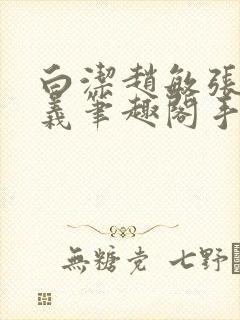 白潔趙敏張
義筆趣閣手
無糖党 七野